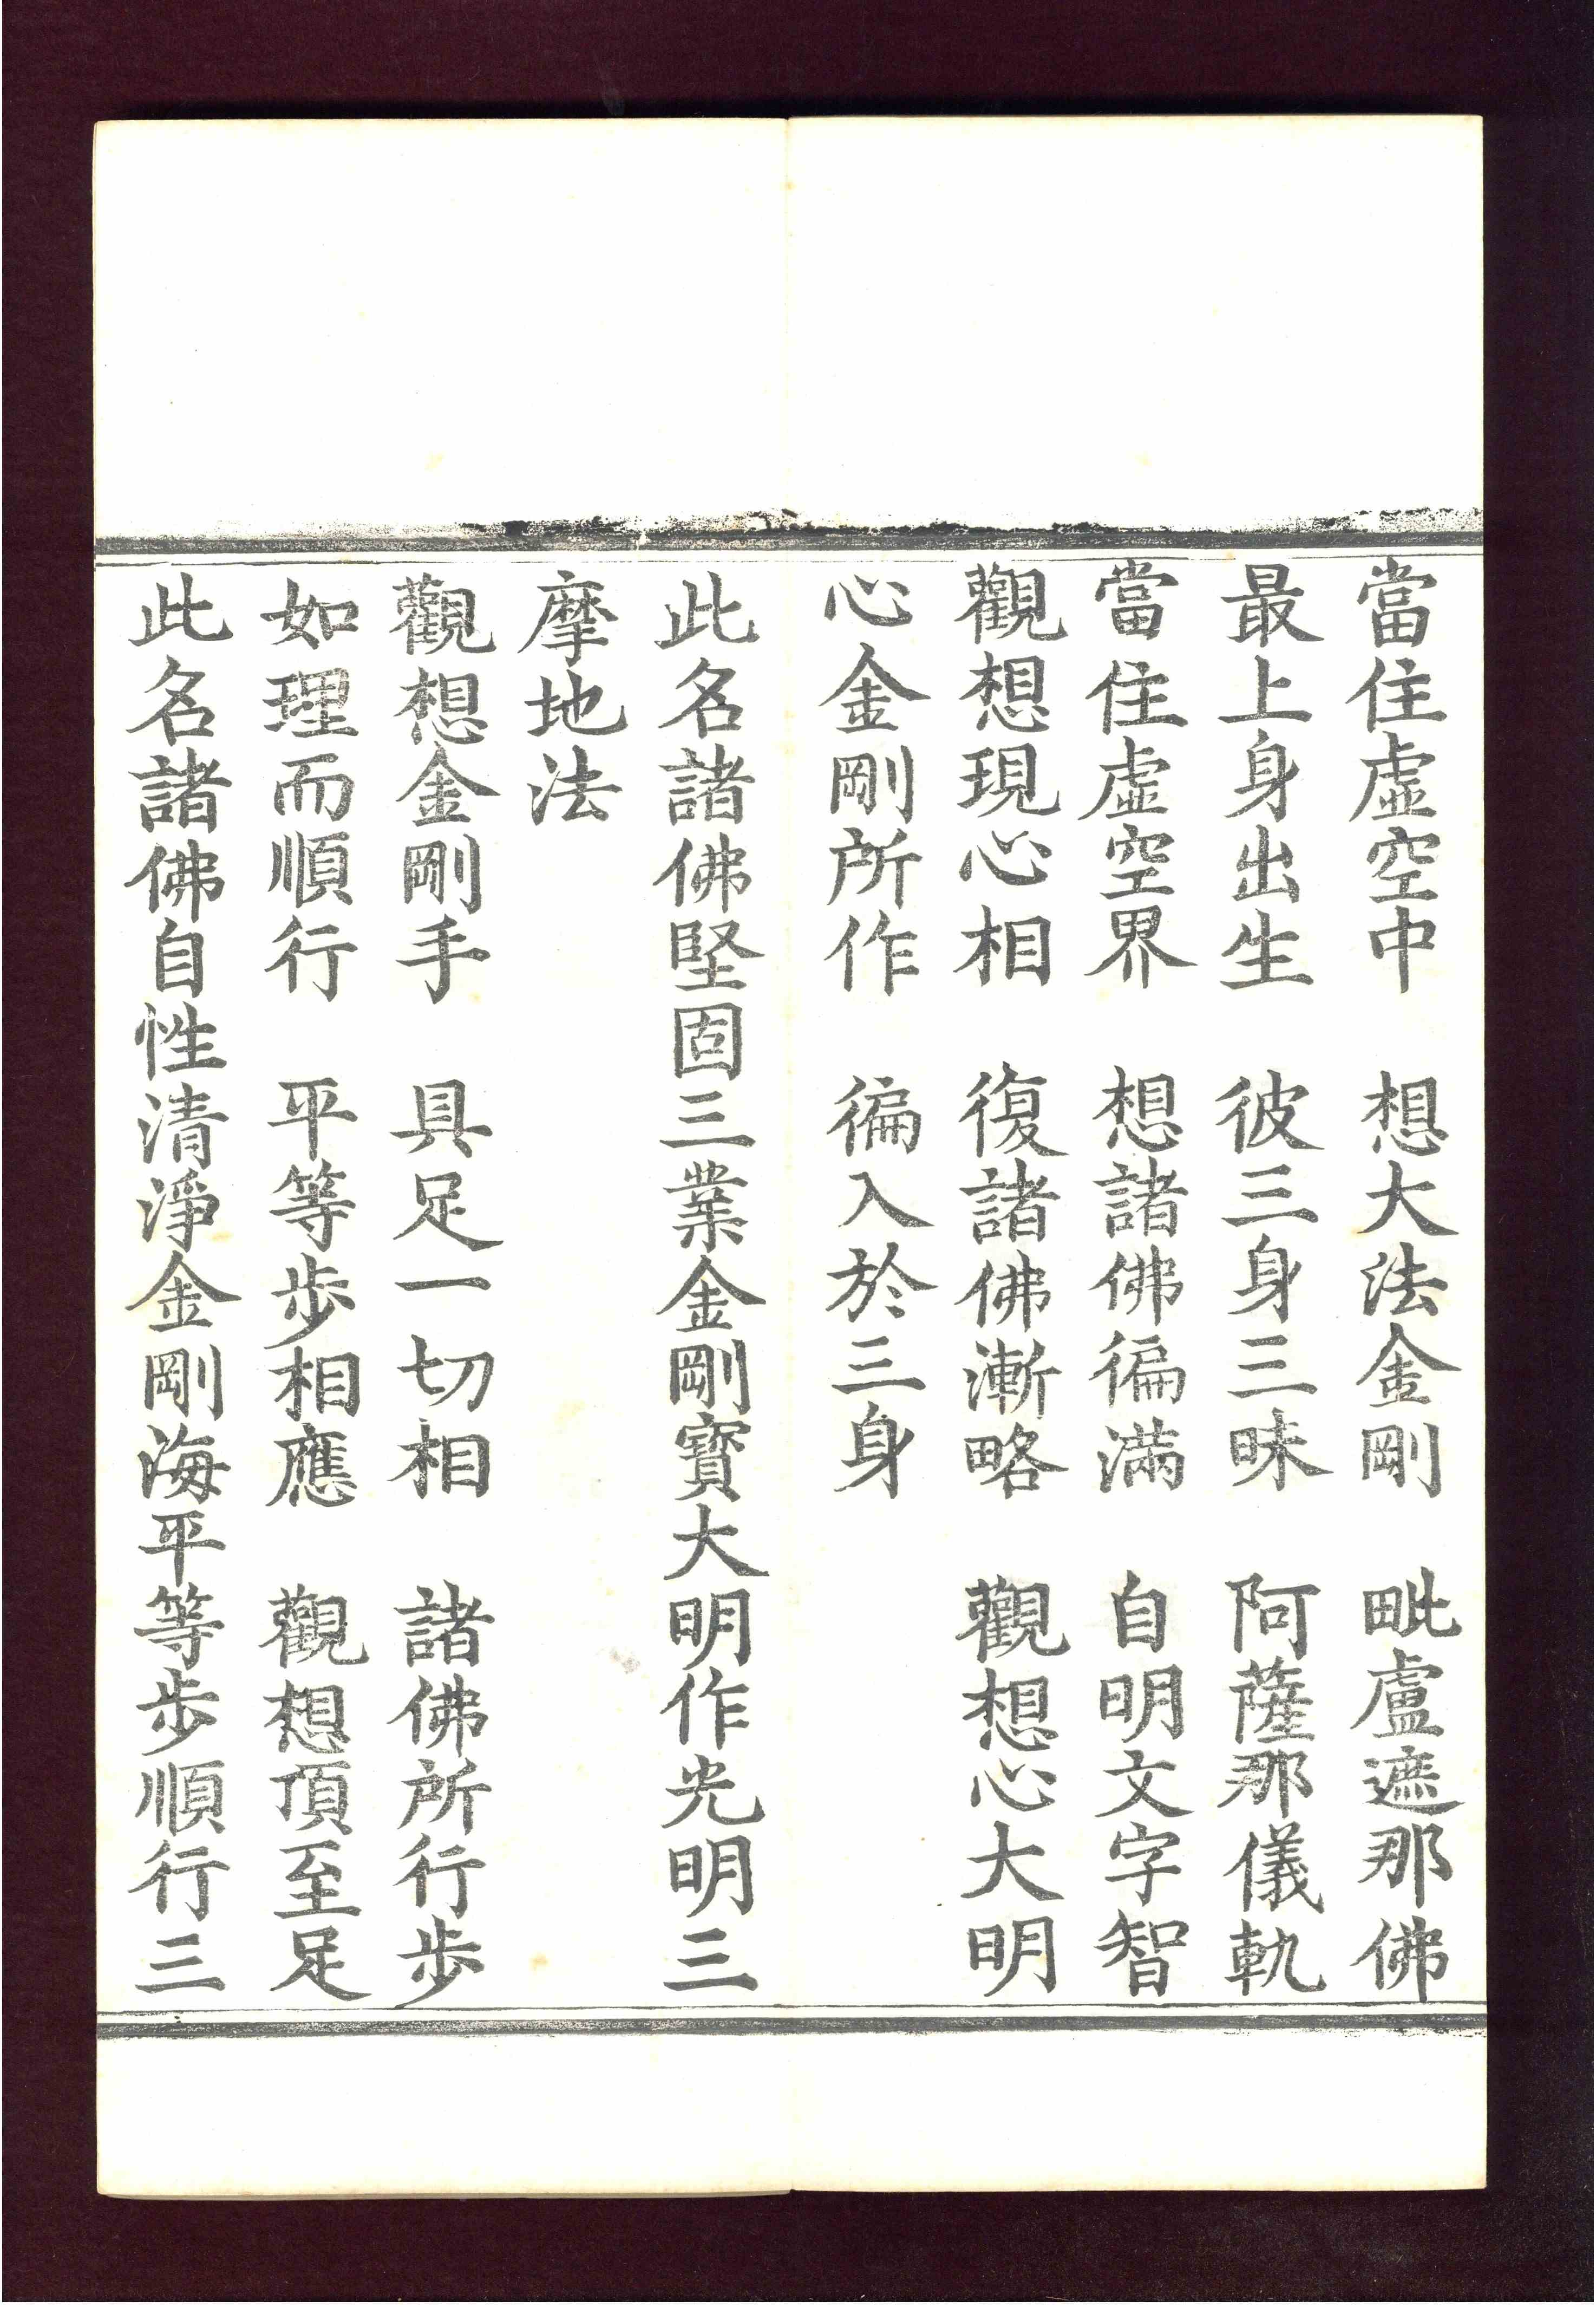 當住虛空中　想大法金剛　毗盧遮那佛
最上身出生　彼三身三昧　阿薩那儀軌
當住虛空界　想諸佛徧滿　自明文字智
觀想現心相　復諸佛漸略　觀想心大明
心金剛所作　徧入於三身
此名諸佛堅固三業金剛寶大明作光明三
摩地法
觀想金剛手　具足一切相　諸佛所行步
如理而順行　平等步相應　觀想頂至足
此名諸佛自性清淨金剛海平等步順行三